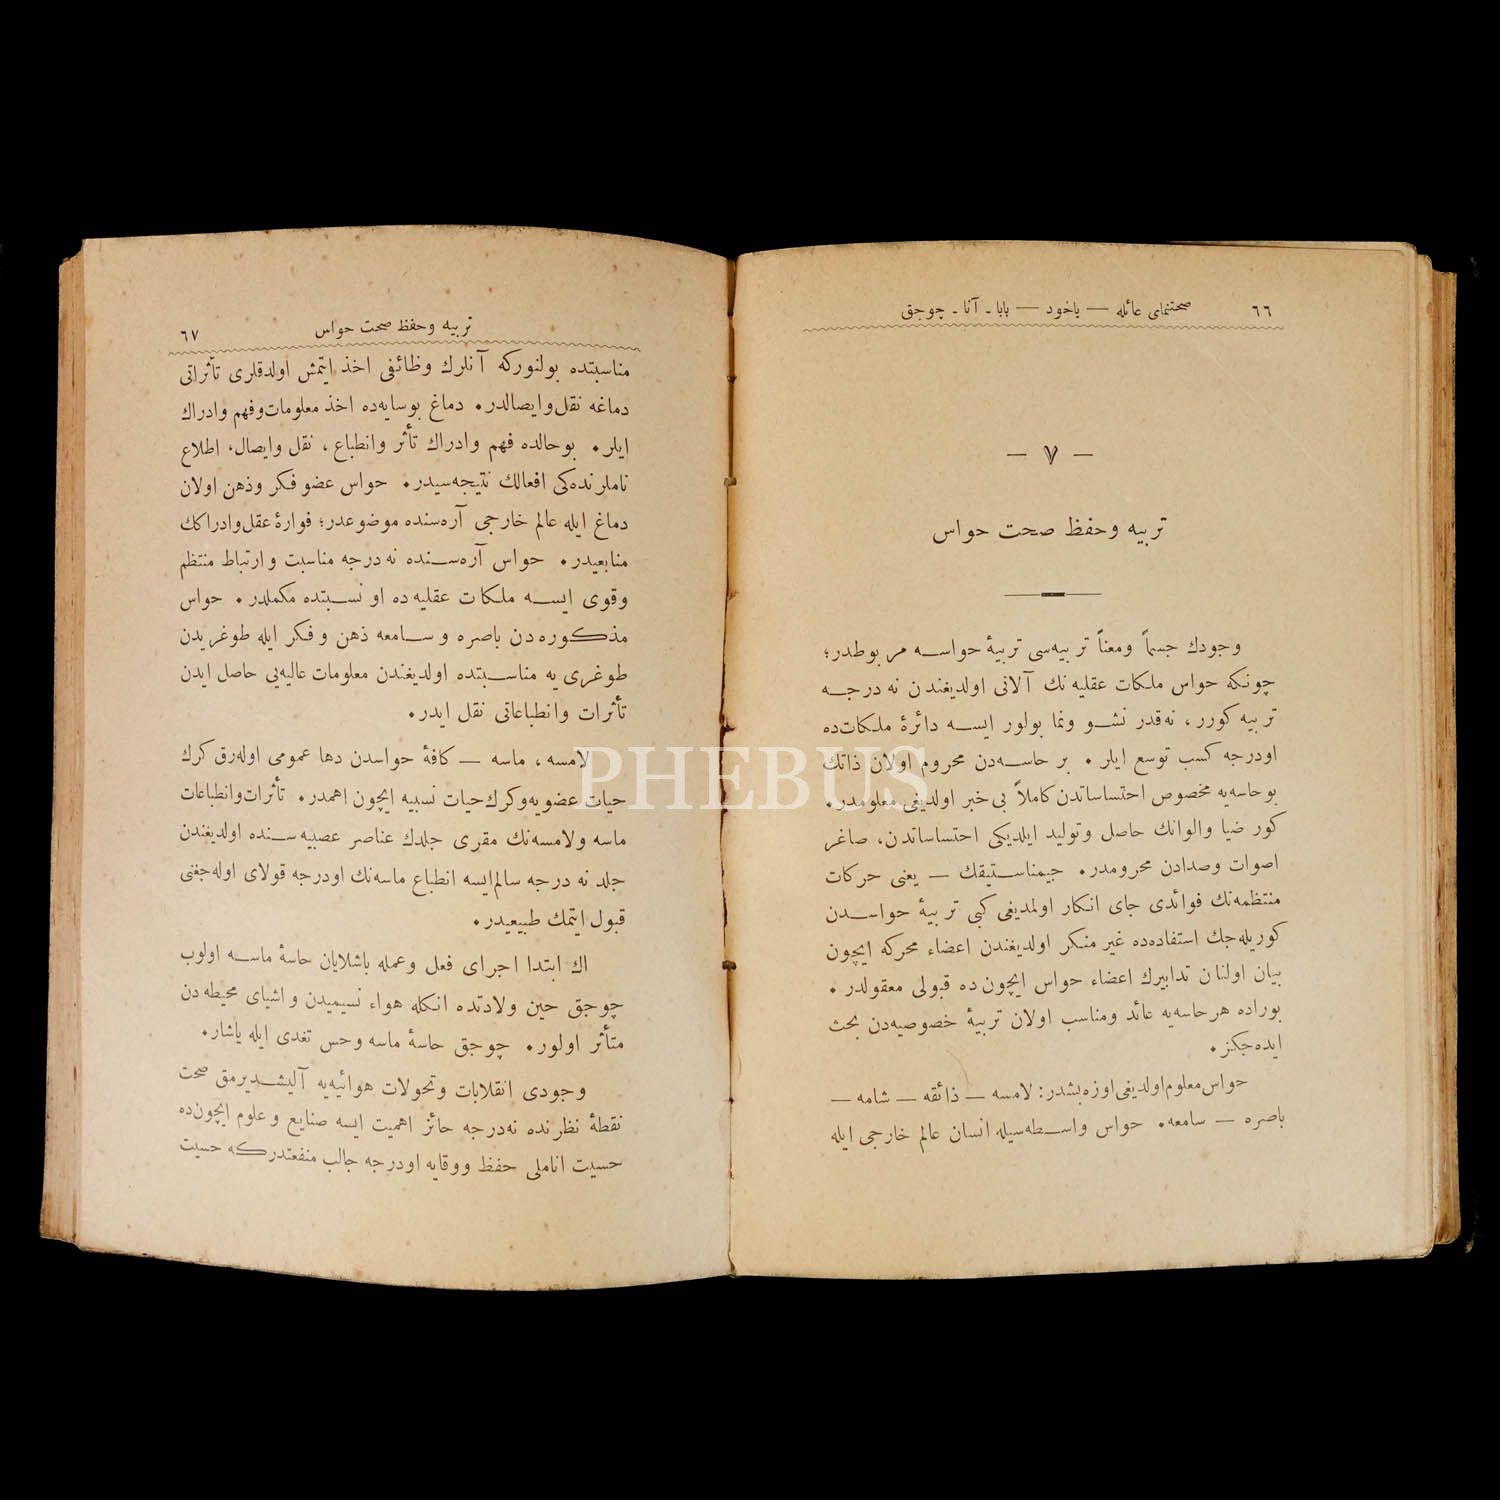 ٦٦
صحتنمای عائله — یاخود — بابا - آنا - چوجق
— ٧ —
تربیه وحفظ صحت حواس
وجودك جسماً ومعناً تربیه‌سی تربیۀ حواسه مربوطدر؛
چونكه حواس ملكات عقلیه‌نك آلاتی اولدیغندن نه درجه
تربیه كورر، نه‌قدر نشو ونما بولور ایسه دائرۀ ملكات‌ده
اودرجه كسب توسع ایلر. بر حاسه‌دن محروم اولان ذاتك
بوحاسه‌یه مخصوص احتساساتدن كاملاً بی‌خبر اولدیغی معلومدر.
كور ضیا والوانك حاصل وتولید ایلدیكی احتساساتدن، صاغر
اصوات وصدادن محرومدر. جیمناستیقك — یعنی حركات
منتظمه‌نك فوائدی جای انكار اولمدیغی كبی تربیۀ حواسدن
كوریله‌جك استفاده‌ده غیر منكر اولدیغندن اعضاء محركه ایچون
بیان اولنان تدابیرك اعضاء حواس ایچون ده قبولی معقولدر.
بوراده هرحاسه‌یه عائد ومناسب اولان تربیۀ خصوصیه‌دن بحث
ایده‌جكز.
حواس معلوم اولدیغی اوزه بشدر: لامسه — ذائقه — شامه —
باصره — سامعه. حواس واسطه‌سیله انسان عالم خارجی ایله
تربیه وحفظ صحت حواس
٦٧
مناسبتده بولنوركه آنلرك وظائفی اخذ ایتمش اولدقلری تأثراتی
دماغه نقل وایصالدر. دماغ بوسایه‌ده اخذ معلومات وفهم وادراك
ایلر. بوحالده فهم وادراك تأثر وانطباع، نقل وایصال، اطلاع
ناملرنده‌كی افعالك نتیجه‌سیدر. حواس عضو فكر وذهن اولان
دماغ ایله عالم خارجی آره‌سنده موضوعدر؛ فوارۀ عقل وادراكك
منابعیدر. حواس آره‌سنده نه درجه مناسبت وارتباط منتظم
وقوی ایسه ملكات عقلیه ده او نسبتده مكملدر. حواس
مذكوره‌دن باصره وسامعه ذهن وفكر ایله طوغریدن
طوغری یه مناسبتده اولدیغندن معلومات عالیه‌یی حاصل ایدن
تأثرات وانطباعاتی نقل ایدر.
لامسه، ماسه — كافۀ حواسدن دها عمومی اوله‌رق كرك
حیات عضویه وكرك حیات نسبیه ایچون اهمدر. تأثرات وانطباعات
ماسه ولامسه‌نك مقری جلدك عناصر عصبیه‌سنده اولدیغندن
جلد نه درجه سالم ایسه انطباع ماسه‌نك اودرجه قولای اوله‌جغنی
قبول ایتمك طبیعیدر.
اك ابتدا اجرای فعل وعمله باشلایان حاسۀ ماسه اولوب
چوجق حین ولادتده انكله هواء نسیمیدن واشیای محیطه‌دن
متأثر اولور. چوجق حاسۀ ماسه وحس تغدی ایله یاشار.
وجودی انقلابات وتحولات هوائیه‌یه آلیشدیرمق صحت
نقطۀ نظرنده نه‌درجه حائز اهمیت ایسه صنایع وعلوم ایچون‌ده
حسیت اناملی حفظ ووقایه اودرجه جالب منفعتدركه حسیت
PHEBUS